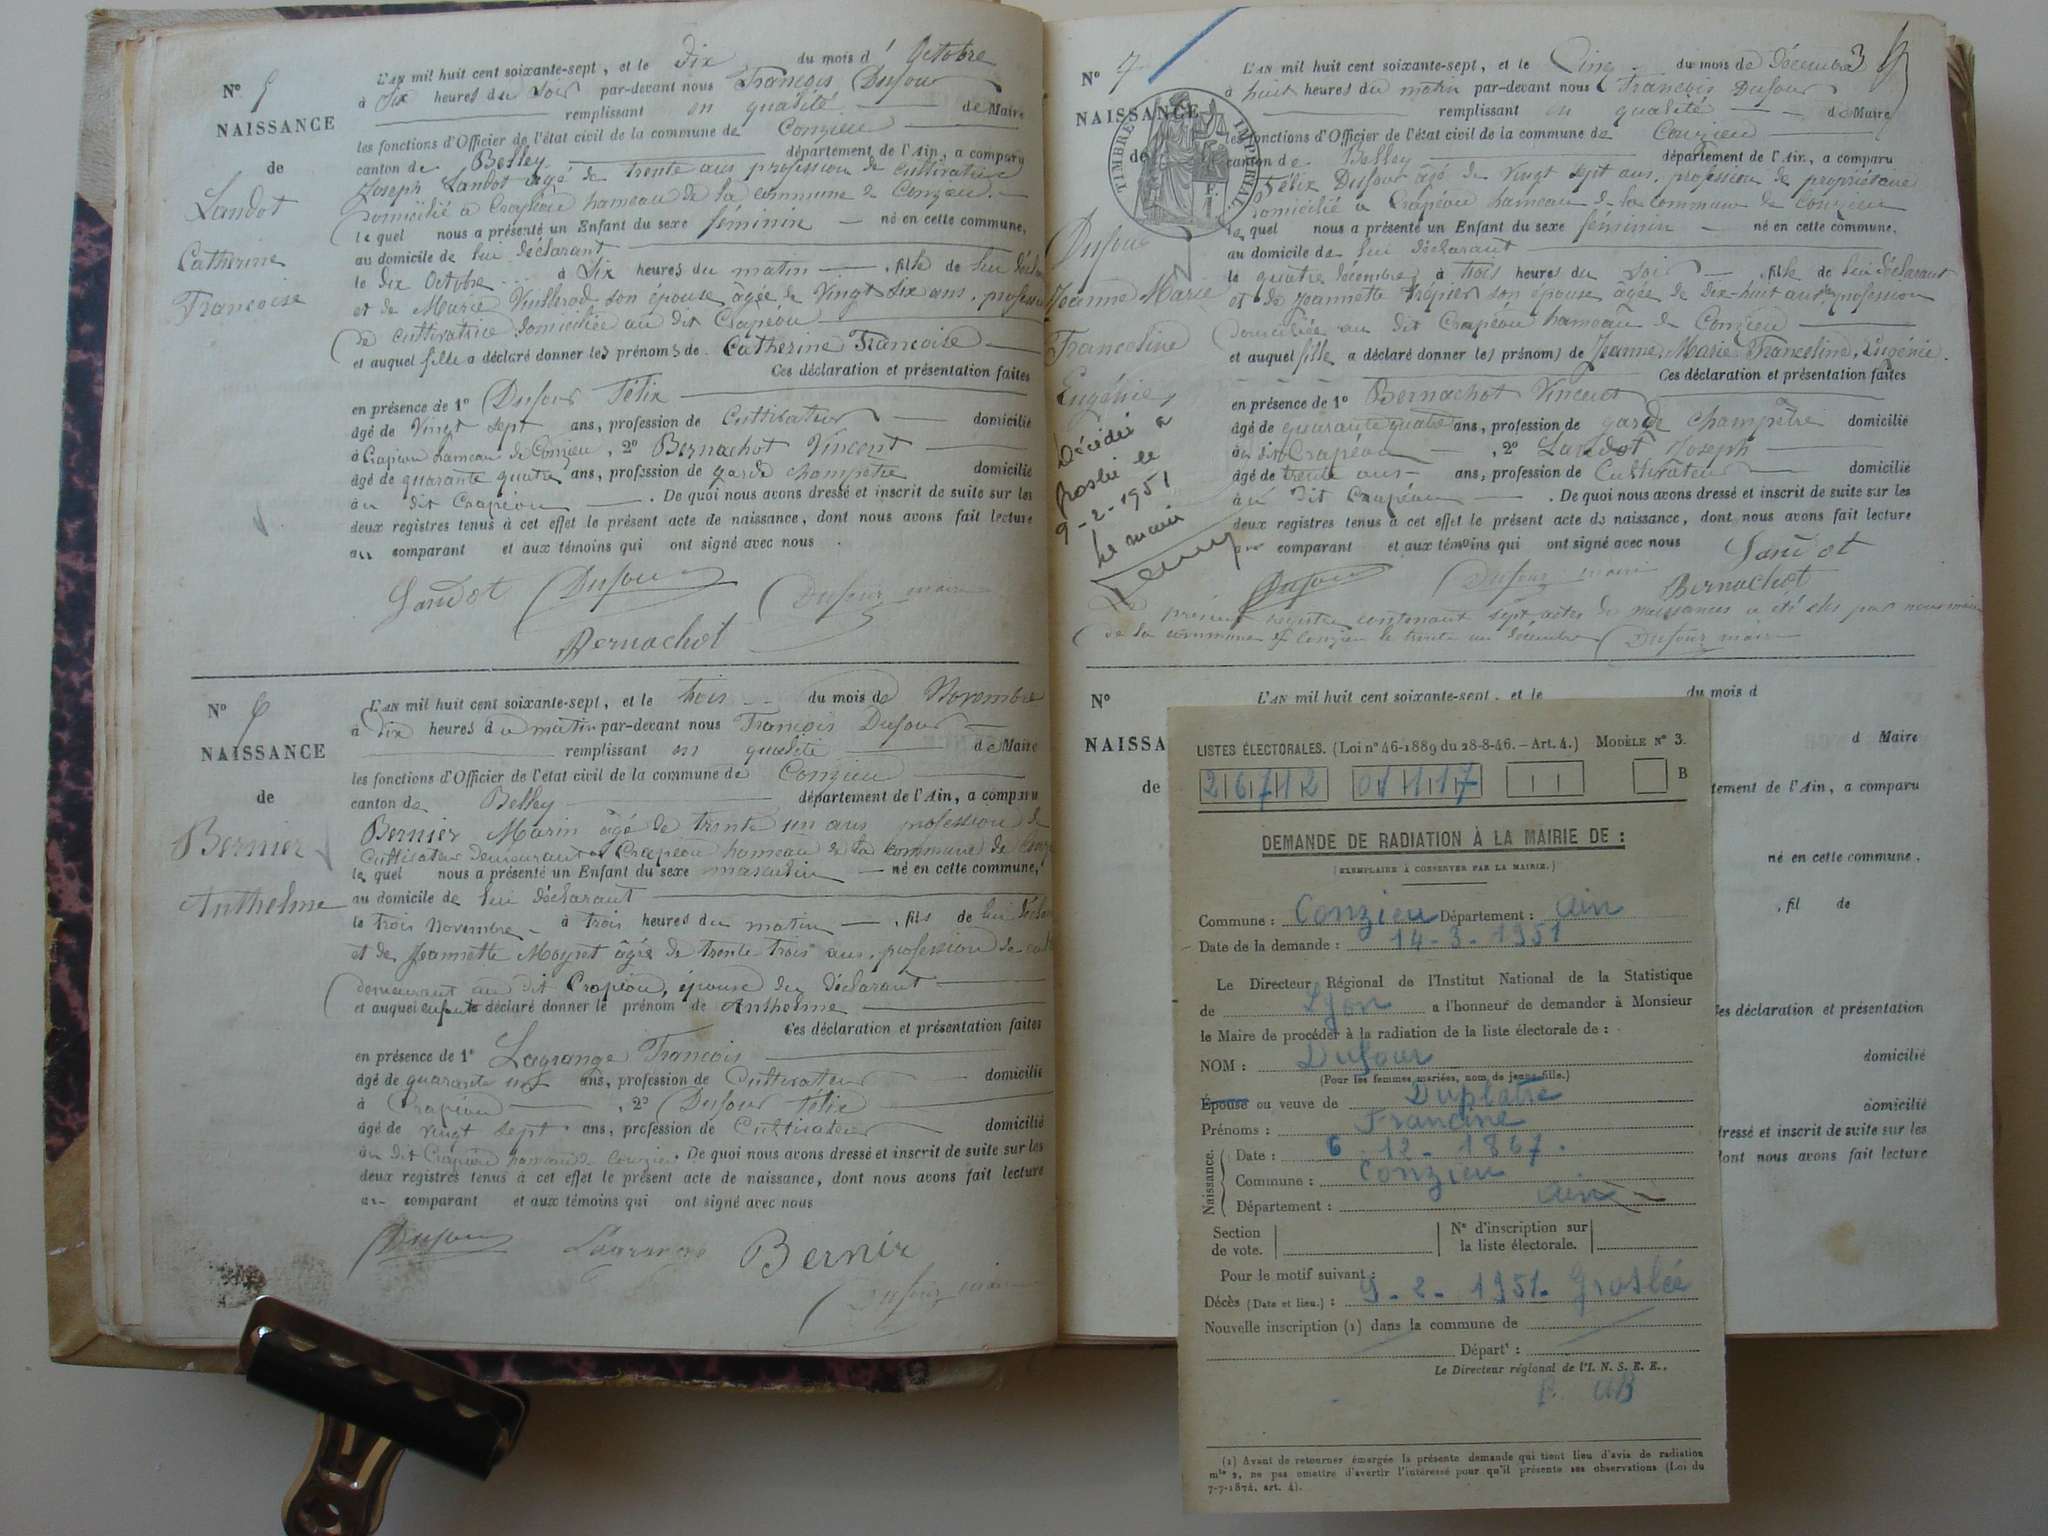 N° 5
NAISSANCE
de
Landot
Catherine
Françoise
L'AN mil huit cent soixante-sept, et le Dix du mois d' Octobre
à Six heures du Soir par-devant nous François Dufour
remplissant en qualité de Maire
les fonctions d'Officier de l'état civil de la commune de Conzieu
canton de Belley département de l'Ain, a comparu
Joseph Landot âgé de trente ans profession de cultivateur
Domicilié à Crapéou hameau de la commune de Conzieu.
le quel nous a présenté un Enfant du sexe féminin né en cette commune,
au domicile de lui déclarant
le dix Octobre à Six heures du matin, fille de lui
et de Marie son épouse âgée de Vingt Six ans, profession
de cultivatrice domiciliée au dit Crapéou
et auquel fille a déclaré donner les prénoms de Catherine Françoise
Ces déclaration et présentation faites
en présence de 1° Dufour Félix
âgé de Vingt sept ans, profession de Cultivateur domicilié
à Crapéou hameau de Conzieu, 2° Bernachot Vincent
âgé de quarante quatre ans, profession de garde champêtre domicilié
au dit Crapéou. De quoi nous avons dressé et inscrit de suite sur les
deux registres tenus à cet effet le présent acte de naissance, dont nous avons fait lecture
au comparant et aux témoins qui ont signé avec nous.
Landot Dufour Dufour maire
Bernachot
N° 6
NAISSANCE
de
Bernier
Anthelme
L'AN mil huit cent soixante-sept, et le trois du mois de Novembre
à dix heures du matin par-devant nous François Dufour
remplissant en qualité de Maire
les fonctions d'Officier de l'etat civil de la commune de Conzieu
canton de Belley département de l'Ain, a comparu
Bernier Marin âgé de trente un ans profession de
Cultivateur demeurant à Crapeou hameau de la commune de
le quel nous a présenté un Enfant du sexe masculin né en cette commune,
au domicile de lui déclarant
le trois Novembre à trois heures du matin, fils de lui
et de Jeannette Meyret âgée de trente trois ans, profession de
demeurant au dit Crapéou, épouse du déclarant
et auquel enfant a déclaré donner le prénom de Anthelme
Ces déclaration et présentation faites
en présence de 1° Lagrange François
âgé de quarante ans, profession de Cultivateur domicilié
à Crapéou, 2° Dufour Félix
âgé de vingt sept ans, profession de Cultivateur domicilié
au dit Crapéou hameau de Conzieu. De quoi nous avons dressé et inscrit de suite sur les
deux registres tenus à cet effet le présent acte de naissance, dont nous avons fait lecture
au comparant et aux témoins qui ont signé avec nous
Dufour Lagrange Bernier
Dufour maire
N° 7
NAISSANCE
de
TIMBRE IMPERIAL
Dufour
Jeanne Marie
Franceline
Eugénie
Décédée à
Groslée le
9-2-1951
Le maire
L'AN mil huit cent soixante-sept, et le Cinq du mois de Décembre
à huit heures du matin par-devant nous François Dufour
remplissant en qualité de Maire
les fonctions d'Officier de l'état civil de la commune de Conzieu
canton de Belley département de l'Ain, a comparu
Félix Dufour âgé de Vingt sept ans, profession de propriétaire
Domicilié à Crapéou hameau de la commune de Conzieu
le quel nous a présenté un Enfant du sexe féminin né en cette commune,
au domicile de lui déclarant
le quatre décembre à trois heures du soir, fille de lui déclarant
et de Jeannette Trépier son épouse âgée de dix-huit ans profession
domiciliée au dit Crapéou hameau de Conzieu
et auquel fille a déclaré donner les prénoms de Jeanne, Marie Franceline, Eugénie.
Ces déclaration et présentation faites
en présence de 1° Bernachot Vincent
âgé de quarante quatre ans, profession de garde champêtre domicilié
au dit Crapéou, 2° Landot Joseph
âgé de trente ans ans, profession de Cultivateur domicilié
au dit Crapéou. De quoi nous avons dressé et inscrit de suite sur les
deux registres tenus à cet effet le présent acte de naissance, dont nous avons fait lecture
au comparant et aux témoins qui ont signé avec nous Landot
Dufour Dufour maire Bernachot
Le présent registre contenant sept actes de naissances a été clos par nous maire
de la commune de Conzieu le trente un Décembre Dufour maire
N°
NAISSA
de
L'AN mil huit cent soixante-sept, et le du mois d
d Maire
tement de l'Ain, a comparu
né en cette commune.
, fil de
es déclaration et présentation
domicilié
domicilié
dressé et inscrit de suite sur les
dont nous avons fait lecture
LISTES ÉLECTORALES. (Loi n° 46-1889 du 28-8-46. – Art. 4.) MODÈLE N° 3.
26712 01117 B
DEMANDE DE RADIATION À LA MAIRIE DE :
(EXEMPLAIRE À CONSERVER PAR LA MAIRIE.)
Commune : Conzieu Département : Ain
Date de la demande : 14-3-1951
Le Directeur Régional de l'Institut National de la Statistique
de Lyon a l'honneur de demander à Monsieur
le Maire de procéder à la radiation de la liste électorale de :
NOM : Dufour
(Pour les femmes mariées, nom de jeune fille.)
Épouse ou veuve de Duplatre
Prénoms : Francine
Naissance.
Date : 6. 12. 1867.
Commune : Conzieu
Département : Ain
Section de vote.
N° d'inscription sur la liste électorale.
Pour le motif suivant :
Décès (Date et lieu.) : 9-2-1951. Groslée
Nouvelle inscription (1) dans la commune de
Départ' :
Le Directeur régional de l'I. N. S. E. E.,
(1) Avant de retourner émargée la présente demande qui tient lieu d'avis de radiation
mle 2, ne pas omettre d'avertir l'intéressé pour qu'il présente ses observations (Loi du
7-7-1874, art. 4).